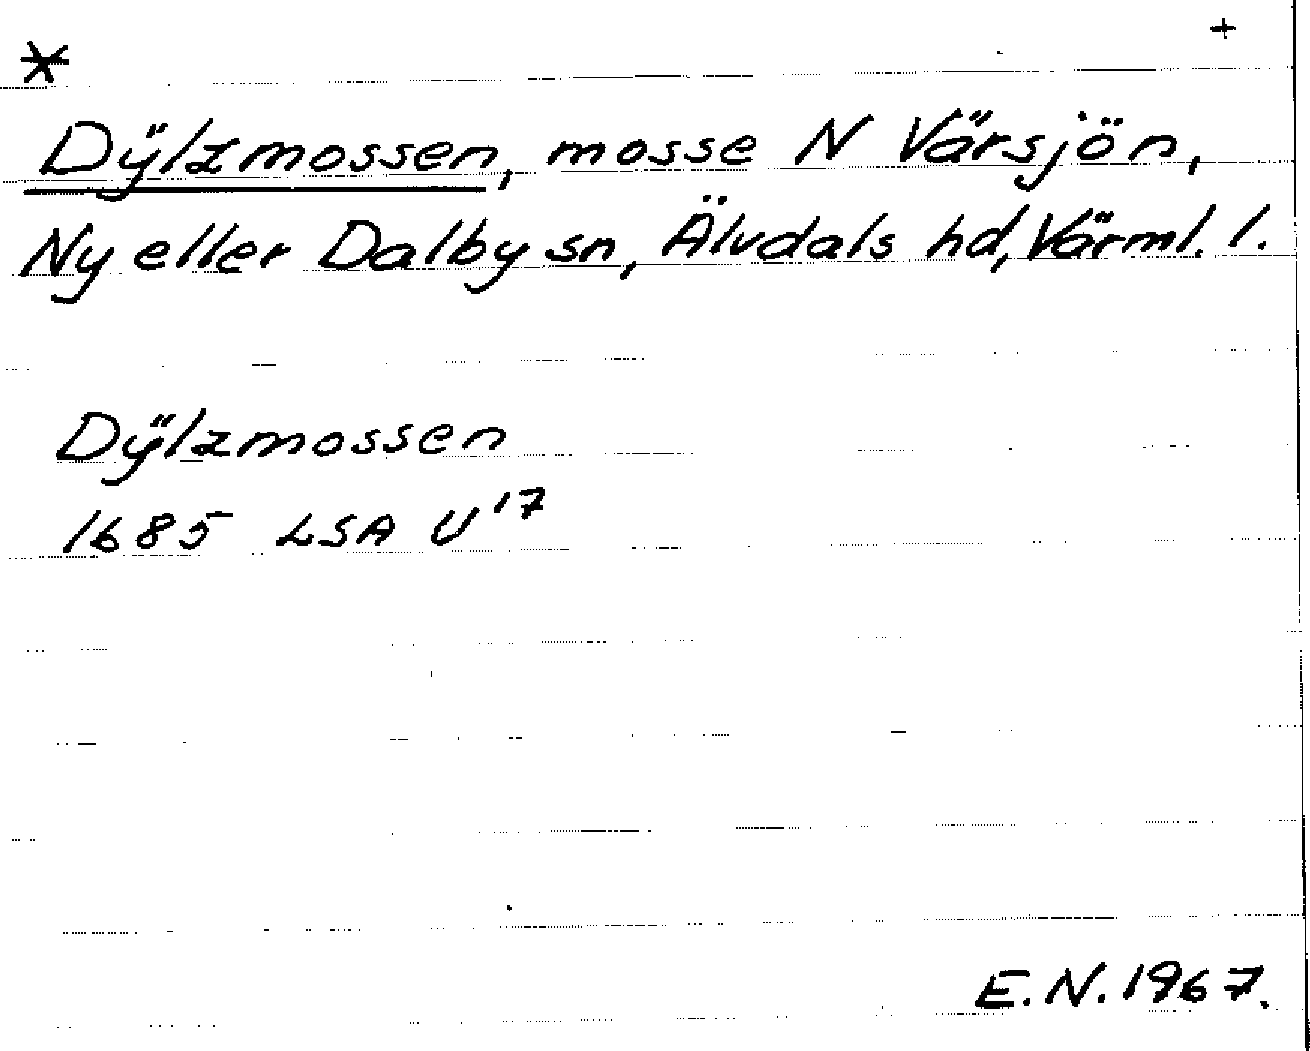 * +
Dÿlzmossen, mosse N Värsjön,
Ny eller Dalby sn, Älvdals hd, Värml. l.
Dÿlzmossen
1685 LSA U¹⁷
E.N. 1967.